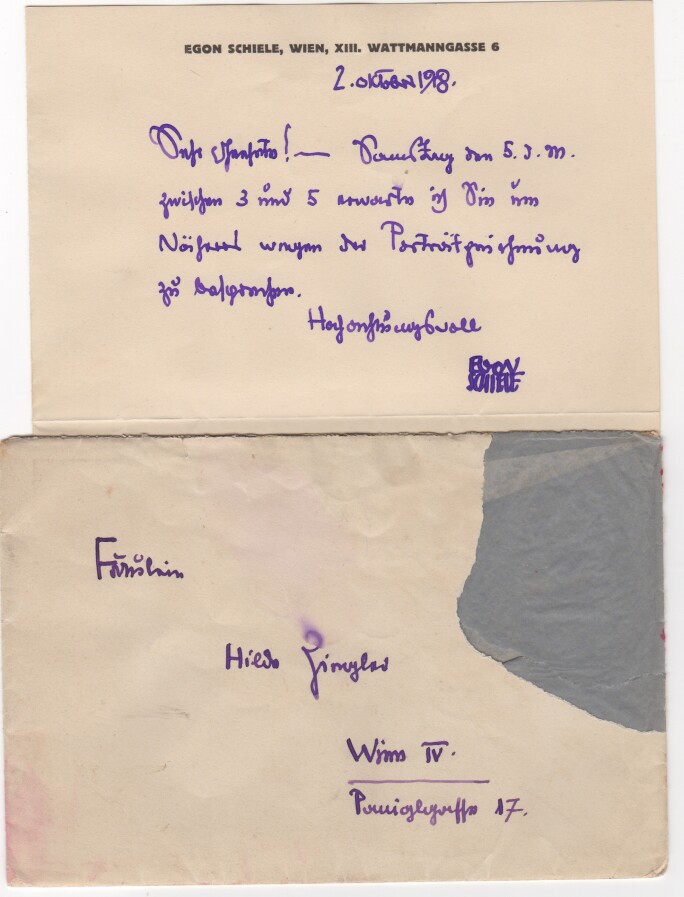 EGON SCHIELE, WIEN, XIII. WATTMANNGASSE 6
2. oktober 1918.
Sehr Verehrte! — Samstag den 5. d. M.
zwischen 3 und 5 erwarte ich Sie um
Näheres wegen der Porträtzeichnung
zu besprechen.
Hochachtungsvoll
EGON
SCHIELE
Fräulein
Hilde Ziegler
Wien IV.
Paniglgasse 17.